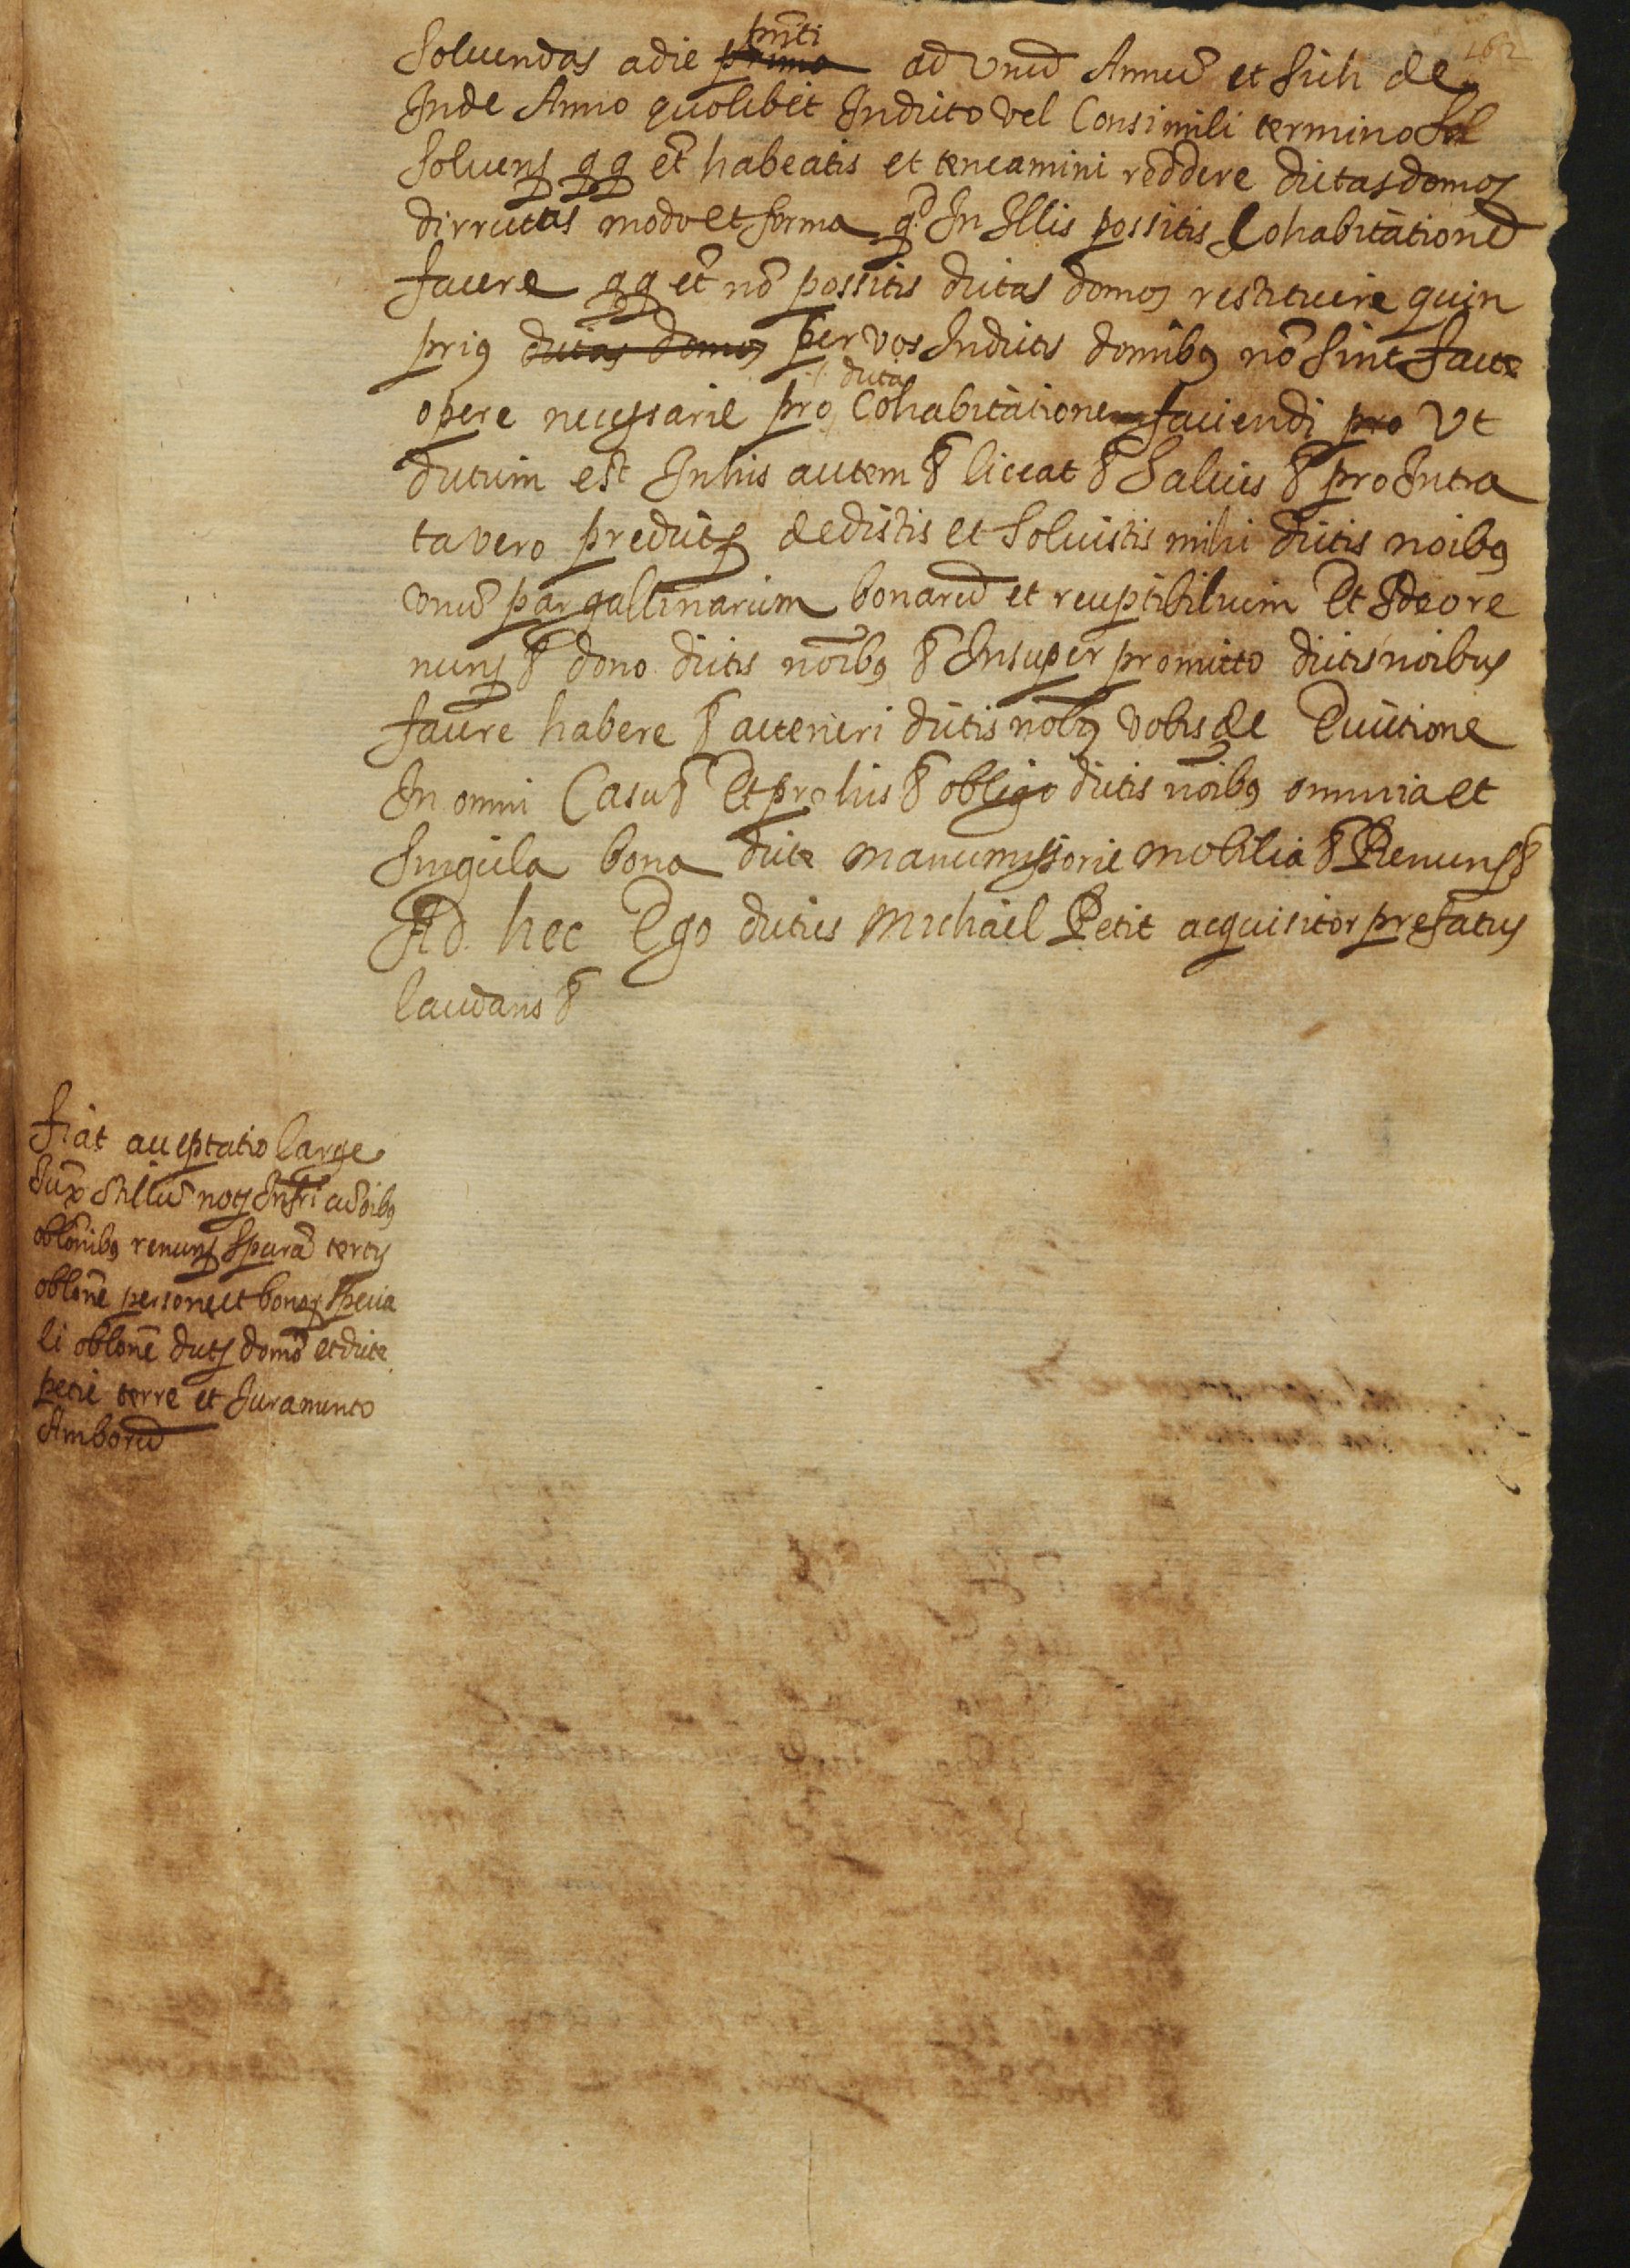 162
pñti
Soluendas adie primo ad vnũ Annũ et sich de
Inde Anno quolibet Indicto vel Consimili termino Sol
soluens qq et habeatis et teneamini reddere dictas domos
dirructas modo et forma qd In Illis possitis Cohabitationẽ
facere qq et nõ possitis dictas domos restituere quin
prius dictas domos per vos Indictis domibus nõ sint facte
dicta
opere necessarie pro Cohabitatione faciendi pro vt
dictum est Inhis autem & liceat & Saluis & pro Intra
ta vero predictis dedistis et soluistis mihi dictis noibus
vnũ par gallinarum bonarũ et receptibilium Et Ideo re
nuns & dono dictis noibus & Insuper promitto dictis noibus
facere habere & ac teneri dictis noibus vobis de Euictione
In omni Casu & Et pro his & obligo dictis noibus omnia et
singula bona dicte manumissorie mobilia & Renuns &
Ad hec Ego dictus Michael Petit acquisitor prefatus
laudans &
fiat acceptatio large
Iux stillũ notis Infri cũ oibus
oblonibus renuns spara tertis
oblone persone et bonor specia
li oblone dictis domo et dicte
petie terre et Iuramento
Amborũ